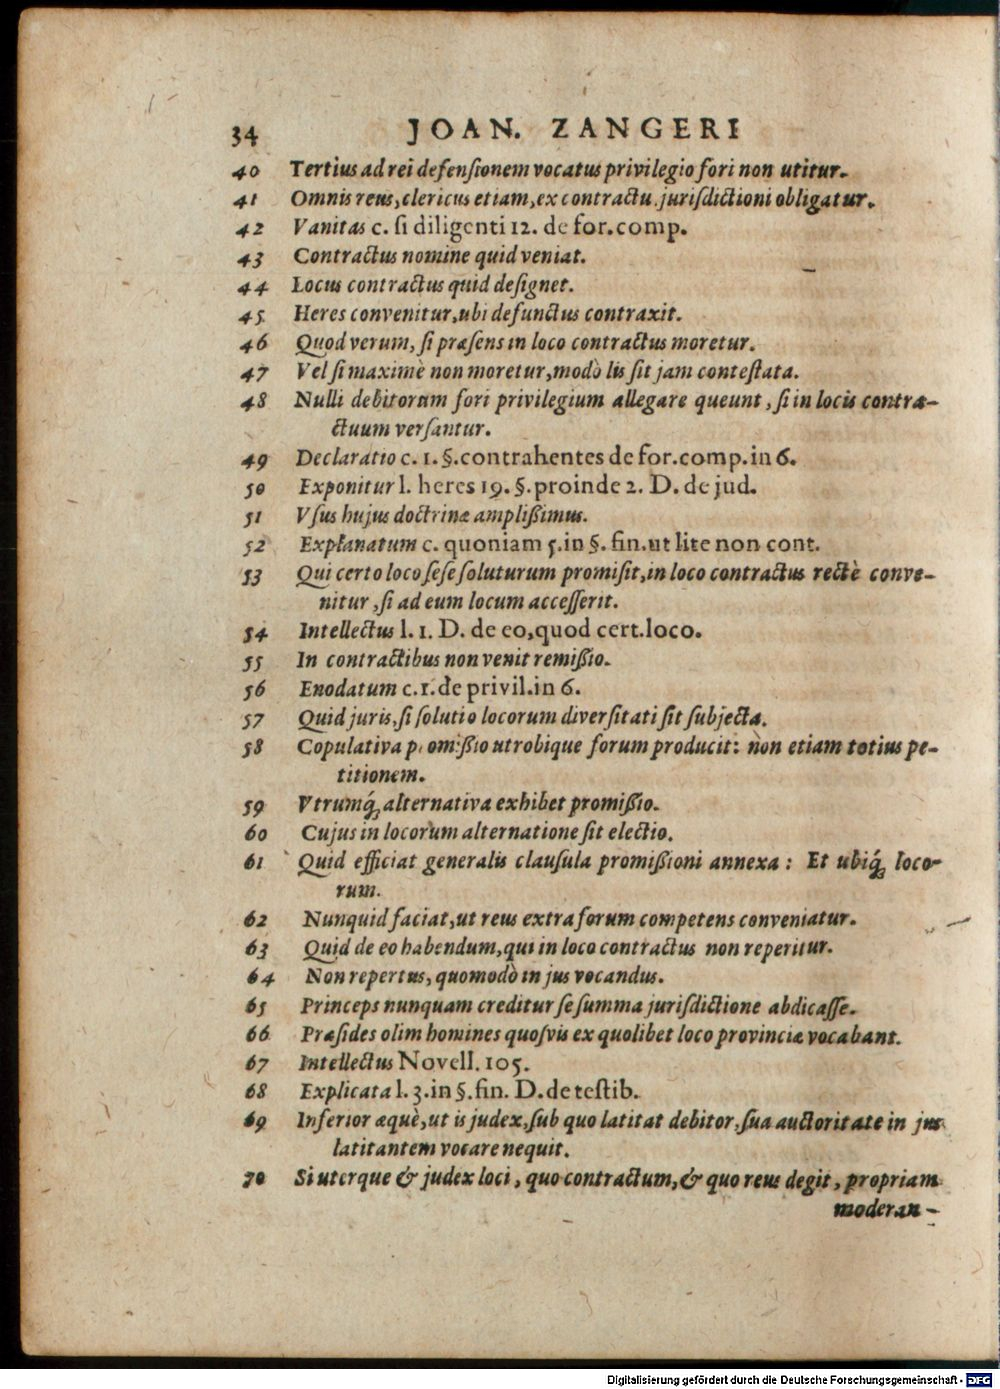 34 JOAN. ZANGERI
40 Tertius ad rei defensionem vocatus privilegio fori non utitur.
41 Omnis reus, clericus etiam, ex contractu jurisdictioni obligatur.
42 Vanitas c. si diligenti 12. de for. comp.
43 Contractus nomine quid veniat.
44 Locus contractus quid designet.
45 Heres convenitur, ubi defunctus contraxit.
46 Quod verum, si præsens in loco contractus moretur.
47 Vel si maximè non moretur, modò lis sit jam contestata.
48 Nulli debitorum fori privilegium allegare queunt, si in locis contra-
ctuum versantur.
49 Declaratio c. 1. §. contrahentes de for. comp. in 6.
50 Exponitur l. heres 19. §. proinde 2. D. de jud.
51 Vsus hujus doctrinæ amplißimus.
52 Explanatum c. quoniam 5. in §. fin. ut lite non cont.
53 Qui certo loco sese soluturum promisit, in loco contractus rectè conve-
nitur, si ad eum locum accesserit.
54 Intellectus l. 1. D. de eo, quod cert. loco.
55 In contractibus non venit remißio.
56 Enodatum c. 1. de privil. in 6.
57 Quid juris, si solutio locorum diversitati sit subjecta.
58 Copulativa promißio utrobique forum producit: non etiam totius pe-
titionem.
59 Vtrumq́; alternativa exhibet promißio.
60 Cujus in locorum alternatione sit electio.
61 Quid efficiat generalis clausula promißioni annexa: Et ubiq́; loco-
rum.
62 Nunquid faciat, ut reus extra forum competens conveniatur.
63 Quid de eo habendum, qui in loco contractus non reperitur.
64 Non repertus, quomodò in jus vocandus.
65 Princeps nunquam creditur se summa jurisdictione abdicasse.
66 Præsides olim homines quosvis ex quolibet loco provinciæ vocabant.
67 Intellectus Novell. 105.
68 Explicata l. 3. in §. fin. D. de testib.
69 Inferior æquè, ut is judex, sub quo latitat debitor, sua auctoritate in jus
latitantem vocare nequit.
70 Si uterque & judex loci, quo contractum, & quo reus degit, propriam
moderan-
Digitalisierung gefördert durch die Deutsche Forschungsgemeinschaft - DFG